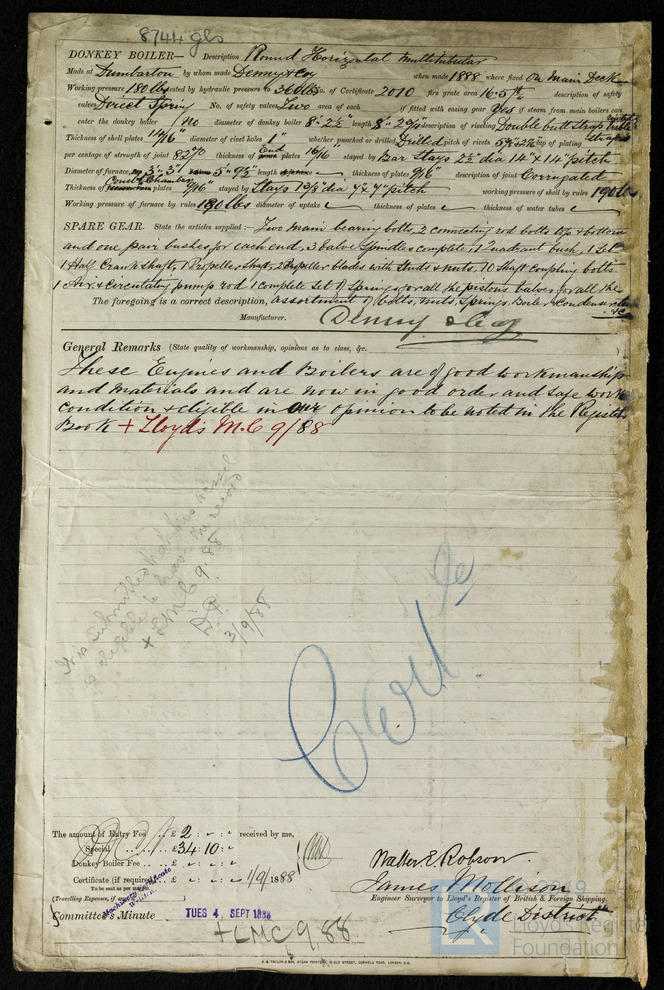 8744 gls
DONKEY BOILER— Description Round Horizontal Multitubular
Made at Dumbarton by whom made Denny & Coy when made 1888 where fixed On Main Deck
Working pressure 180 lbs tested by hydraulic pressure to 360 lbs No. of Certificate 2010 fire grate area 16·5 ft description of safety
valves Direct Spring No. of safety valves Two area of each if fitted with easing gear Yes if steam from main boilers can
enter the donkey boiler no diameter of donkey boiler 8'-2½" length 8'2 9/16" description of riveting Double butt straps treble
Thickness of shell plates 14/16" diameter of rivet holes 1" whether punched or drilled Drilled pitch of rivets lap of plating straps
per centage of strength of joint 82% thickness of End plates 16/16 stayed by Bar Stays 2½" dia 14" x 14" pitch
Diameter of furnace, length thickness of plates 9/16" description of joint Corrugated
Comb. Chamber
Thickness of plates 9/16" stayed by Stays 1⅜" dia pitch working pressure of shell by rules 190 lbs
Working pressure of furnace by rules 190 lbs diameter of uptake thickness of plates thickness of water tubes
SPARE GEAR. State the articles supplied:— Two main bearing bolts, 2 connecting rod bolts top & bottom
and one pair bushes for each end, 3 Valve Spindles complete, 1 Quadrant bush, 1 Set
1 Half Crank Shaft, 1 Propeller Shaft, 2 Propeller blades with Studs & nuts, 10 Shaft coupling bolts
1 Air & Circulating pump rod 1 complete Set of Springs for all the pistons Valves for all the
The foregoing is a correct description, assortment of bolts, nuts, Springs, Boiler & Condenser &c
Manufacturer. Denny & Coy
General Remarks (State quality of workmanship, opinions as to class, &c.
These Engines and Boilers are of good workmanship
and materials and are now in good order and safe work
condition & eligible in our opinion to be noted in the Register
Book + Lloyd's M.C 9/88
It is submitted that this vessel
is eligible to have the record
+ LMC 9.88
3/9/88
The amount of Entry Fee .. £ 2 : - : - received by me,
Special .. £ 34 : 10 : -
Donkey Boiler Fee .. £ - : - : -
Certificate (if required) .. £ - : - : - 1/9/1888
To be sent as per margin.
(Travelling Expenses, if any, £
Machinery Certificate
Written.
Walter E Robson.
James Mollison
Engineer Surveyor to Lloyd's Register of British & Foreign Shipping.
Clyde District
Committee's Minute TUES 4 SEPT 1888
+LMC 9.88
Lloyd's Register
Foundation